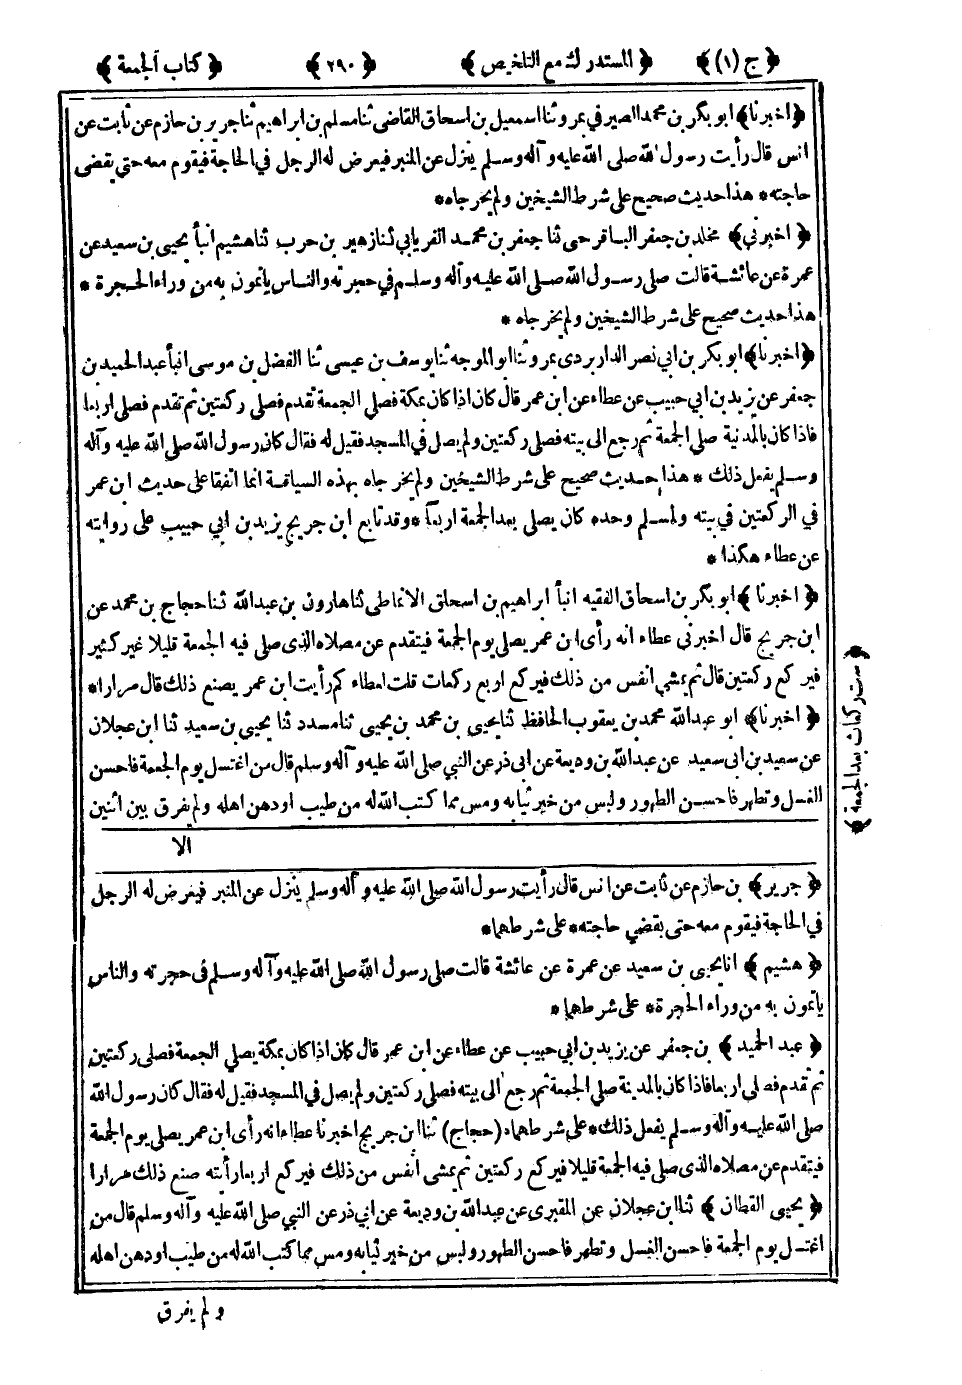 ﴿ ج (١) ﴾ ﴿ المستدرك مع التلخيص ﴾ ﴿ ٢٩٠ ﴾ ﴿ كتاب الجمعة ﴾
﴿ اخبرنا ﴾ ابو بكر بن محمد الصيرفي بمرو ثنا اسمعيل بن اسحاق القاضى ثنا مسلم بن ابراهيم ثنا جرير بن حازم عن ثابت عن
انس قال رأيت رسول الله صلى الله عليه وآله وسلم ينزل عن المنبر فيعرض له الرجل في الحاجة فيقوم معه حتى يقضى
حاجته * هذا حديث صحيح على شرط الشيخين ولم يخرجاه *
﴿ اخبرني ﴾ مخلد بن جعفر الباقرحى ثنا جعفر بن محمد الفريابي ثنا زهير بن حرب ثنا هشيم انبأ يحيى بن سعيد عن
عمرة عن عائشة قالت صلى رسول الله صلى الله عليه وآله وسلم في حجرته والناس يأتمون به من وراء الحجرة *
هذا حديث صحيح على شرط الشيخين ولم يخرجاه *
﴿ اخبرنا ﴾ ابو بكر بن ابي نصر الداربردى بمرو ثنا ابو الموجه ثنا يوسف بن عيسى ثنا الفضل بن موسى انبأ عبد الحميد بن
جعفر عن يزيد بن ابي حبيب عن عطاء عن ابن عمر قال كان اذا كان بمكة فصلى الجمعة تقدم فصلى ركعتين ثم تقدم فصلى اربعا
فاذا كان بالمدنية صلى الجمعة ثم رجع الى بيته فصلى ركعتين ولم يصل في المسجد فقيل له فقال كان رسول الله صلى الله عليه وآله
وسلم يفعل ذلك * هذا حديث صحيح على شرط الشيخين ولم يخرجاه بهذه السياقة انما اتفقا على حديث ابن عمر
في الركعتين في بيته ولمسلم وحده كان يصلى بعد الجمعة اربعا * وقد تابع ابن جريج يزيد بن ابي حبيب على روايته
عن عطاء هكذا *
﴿ اخبرنا ﴾ ابو بكر بن اسحاق الفقيه انبأ ابراهيم بن اسحاق الانماطى ثنا هارون بن عبدالله ثنا حجاج بن محمد عن
ابن جريج قال اخبرني عطاء انه رأى ابن عمر يصلى يوم الجمعة فيتقدم عن مصلاه الذى صلى فيه الجمعة قليلا غير كثير
فيركع ركعتين قال ثم يمشي انفس من ذلك فيركع اربع ركعات قلت لعطاء كم رأيت ابن عمر يصنع ذلك قال مرارا *
﴿ اخبرنا ﴾ ابو عبدالله محمد بن يعقوب الحافظ ثنا يحيى بن محمد بن يحيى ثنا مسدد ثنا يحيى بن سعيد ثنا ابن عجلان
عن سعيد بن ابى سعيد عن عبدالله بن وديعة عن ابى ذر عن النبي صلى الله عليه وآله وسلم قال من اغتسل يوم الجمعة فاحسن
الغسل وتطهر فاحسن الطهور ولبس من خير ثيابه ومس مما كتب الله له من طيب او دهن اهله ولم يفرق بين اثنين
الا
﴿ ست ركعات بعد الجمعة ﴾
﴿ جرير ﴾ بن حازم عن ثابت عن انس قال رأيت رسول الله صلى الله عليه وآله وسلم ينزل عن المنبر فيعرض له الرجل
في الحاجة فيقوم معه حتى يقضي حاجته * على شرطهما *
﴿ هشيم ﴾ انا يحيى بن سعيد عن عمرة عن عائشة قالت صلى رسول الله صلى الله عليه وآله وسلم فى حجرته والناس
يأتمون به من وراء الحجرة * على شرطهما *
﴿ عبد الحميد ﴾ بن جعفر عن يزيد بن ابي حبيب عن عطاء عن ابن عمر قال كان اذا كان بمكة يصلي الجمعة فصلى ركعتين
ثم تقدم فصلى اربعا فاذا كان بالمدينة صلى الجمعة ثم رجع الى بيته فصلى ركعتين ولم يصل في المسجد فقيل له فقال كان رسول الله
صلى الله عليه وآله وسلم يفعل ذلك * على شرطهما * (حجاج) ثنا ابن جريج اخبرنا عطاء انه رأى ابن عمر يصلى يوم الجمعة
فيتقدم عن مصلاه الذى صلى فيه الجمعة قليلا فيركع ركعتين ثم يمشى أنفس من ذلك فيركع اربعا رأيته صنع ذلك مرارا
﴿ يحيى القطان ﴾ ثنا ابن عجلان عن المقبرى عن عبدالله بن وديعة عن ابي ذر عن النبي صلى الله عليه وآله وسلم قال من
اغتسل يوم الجمعة فاحسن الغسل وتطهر فاحسن الطهور ولبس من خير ثيابه ومس مما كتب الله له من طيب او دهن اهله
ولم يفرق